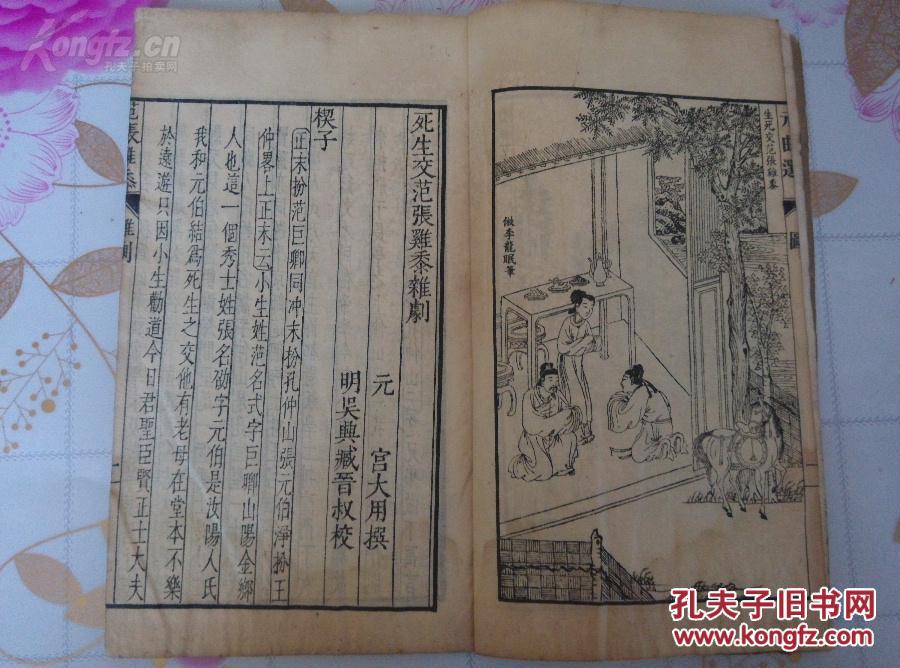 Kongfz.cn
孔夫子拍卖网
生死交范張雞黍
倣李龍眠筆
圖
死生交范張雞黍雜劇
元 宮大用撰
明吳興臧晉叔校
楔子
正末扮范巨卿同冲末扮孔仲山張元伯淨扮王
仲畧上正末云小生姓范名式字巨卿山陽金鄉
人也這一個秀士姓張名劭字元伯是汝陽人氏
我和元伯結爲死生之交他有老母在堂本不樂
於遠遊只因小生勸道今日君聖臣賢正士大夫
范張雞黍
雜劇
一
孔夫子旧书网
www.kongfz.com